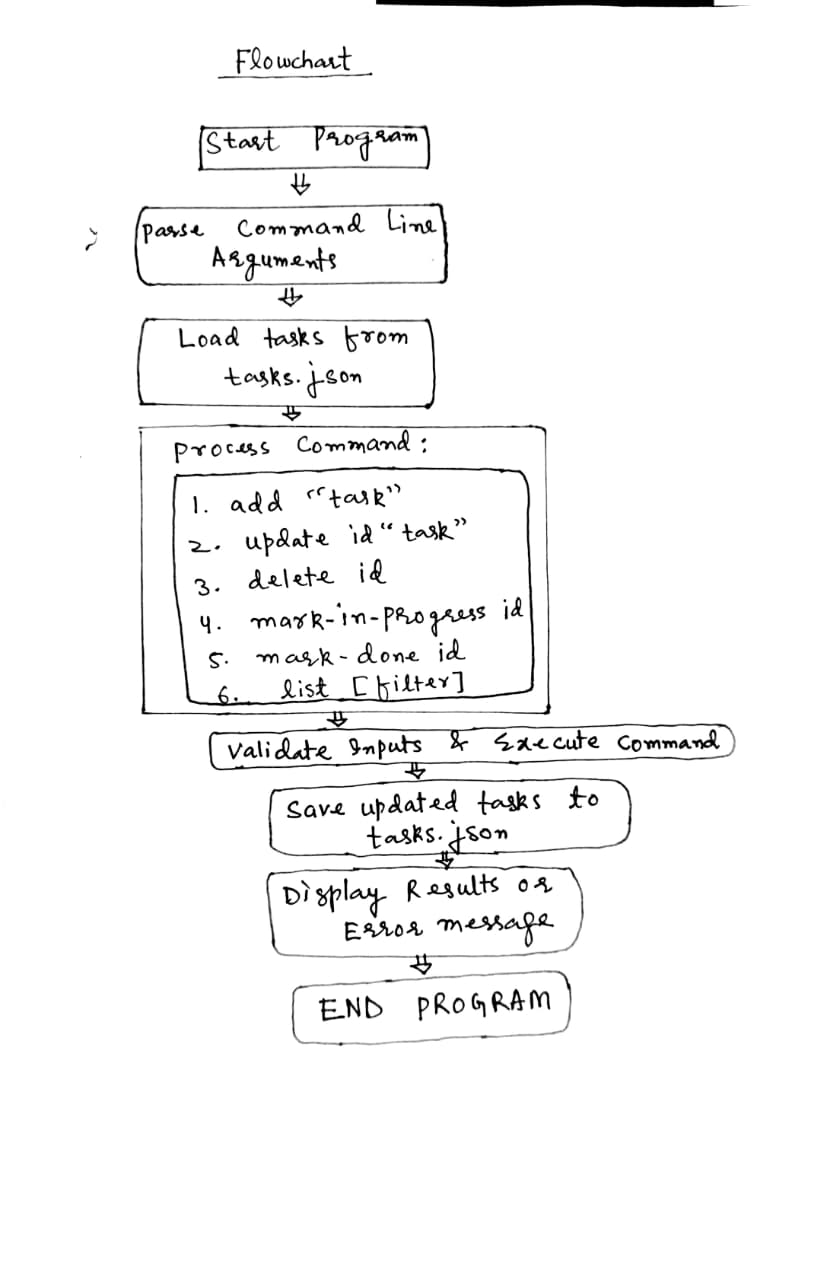 Flowchart
Start Program
Parse Command Line
Arguments
Load tasks from
tasks.json
Process Command:
1. add "task"
2. update id "task"
3. delete id
4. mark-in-progress id
5. mark-done id
6. list [filter]
Validate Inputs & Execute Command
Save updated tasks to
tasks.json
Display Results or
Error message
END PROGRAM